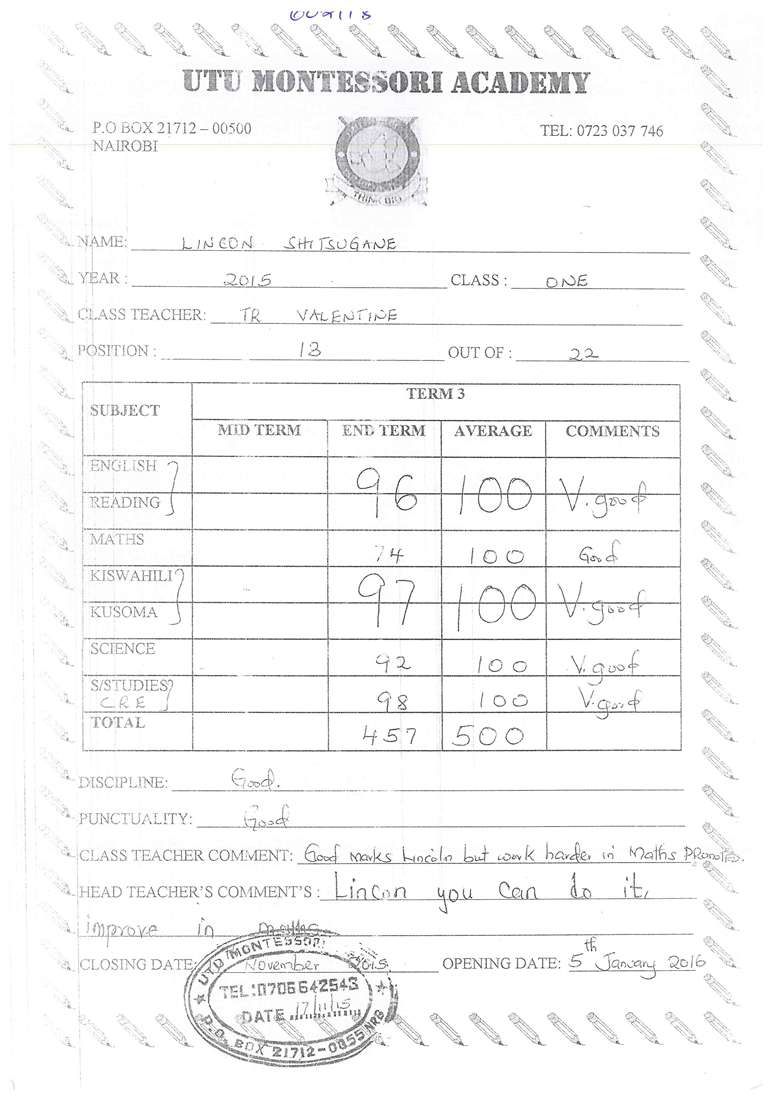 UTU MONTESSORI ACADEMY
P.O BOX 21712 – 00500
NAIROBI
TEL: 0723 037 746
THINK BIG
NAME: LINCON SHITSUGANE
YEAR : 2015 CLASS : ONE
CLASS TEACHER: TR VALENTINE
POSITION : 13 OUT OF : 22
SUBJECT TERM 3
MID TERM END TERM AVERAGE COMMENTS
ENGLISH
READING 96 100 V.good
MATHS 74 100 Good
KISWAHILI
KUSOMA 97 100 V.good
SCIENCE 92 100 V.good
S/STUDIES
CRE 98 100 V.good
TOTAL 457 500
DISCIPLINE: Good.
PUNCTUALITY: Good
CLASS TEACHER COMMENT: Good marks Lincoln but work harder in Maths
HEAD TEACHER'S COMMENT'S : Lincon you can do it,
improve in maths
CLOSING DATE: November 2015 OPENING DATE: 5th January 2016
UTU MONTESSORI
TEL:0706642543
DATE 17/11/15
P.O. BOX 21712-00